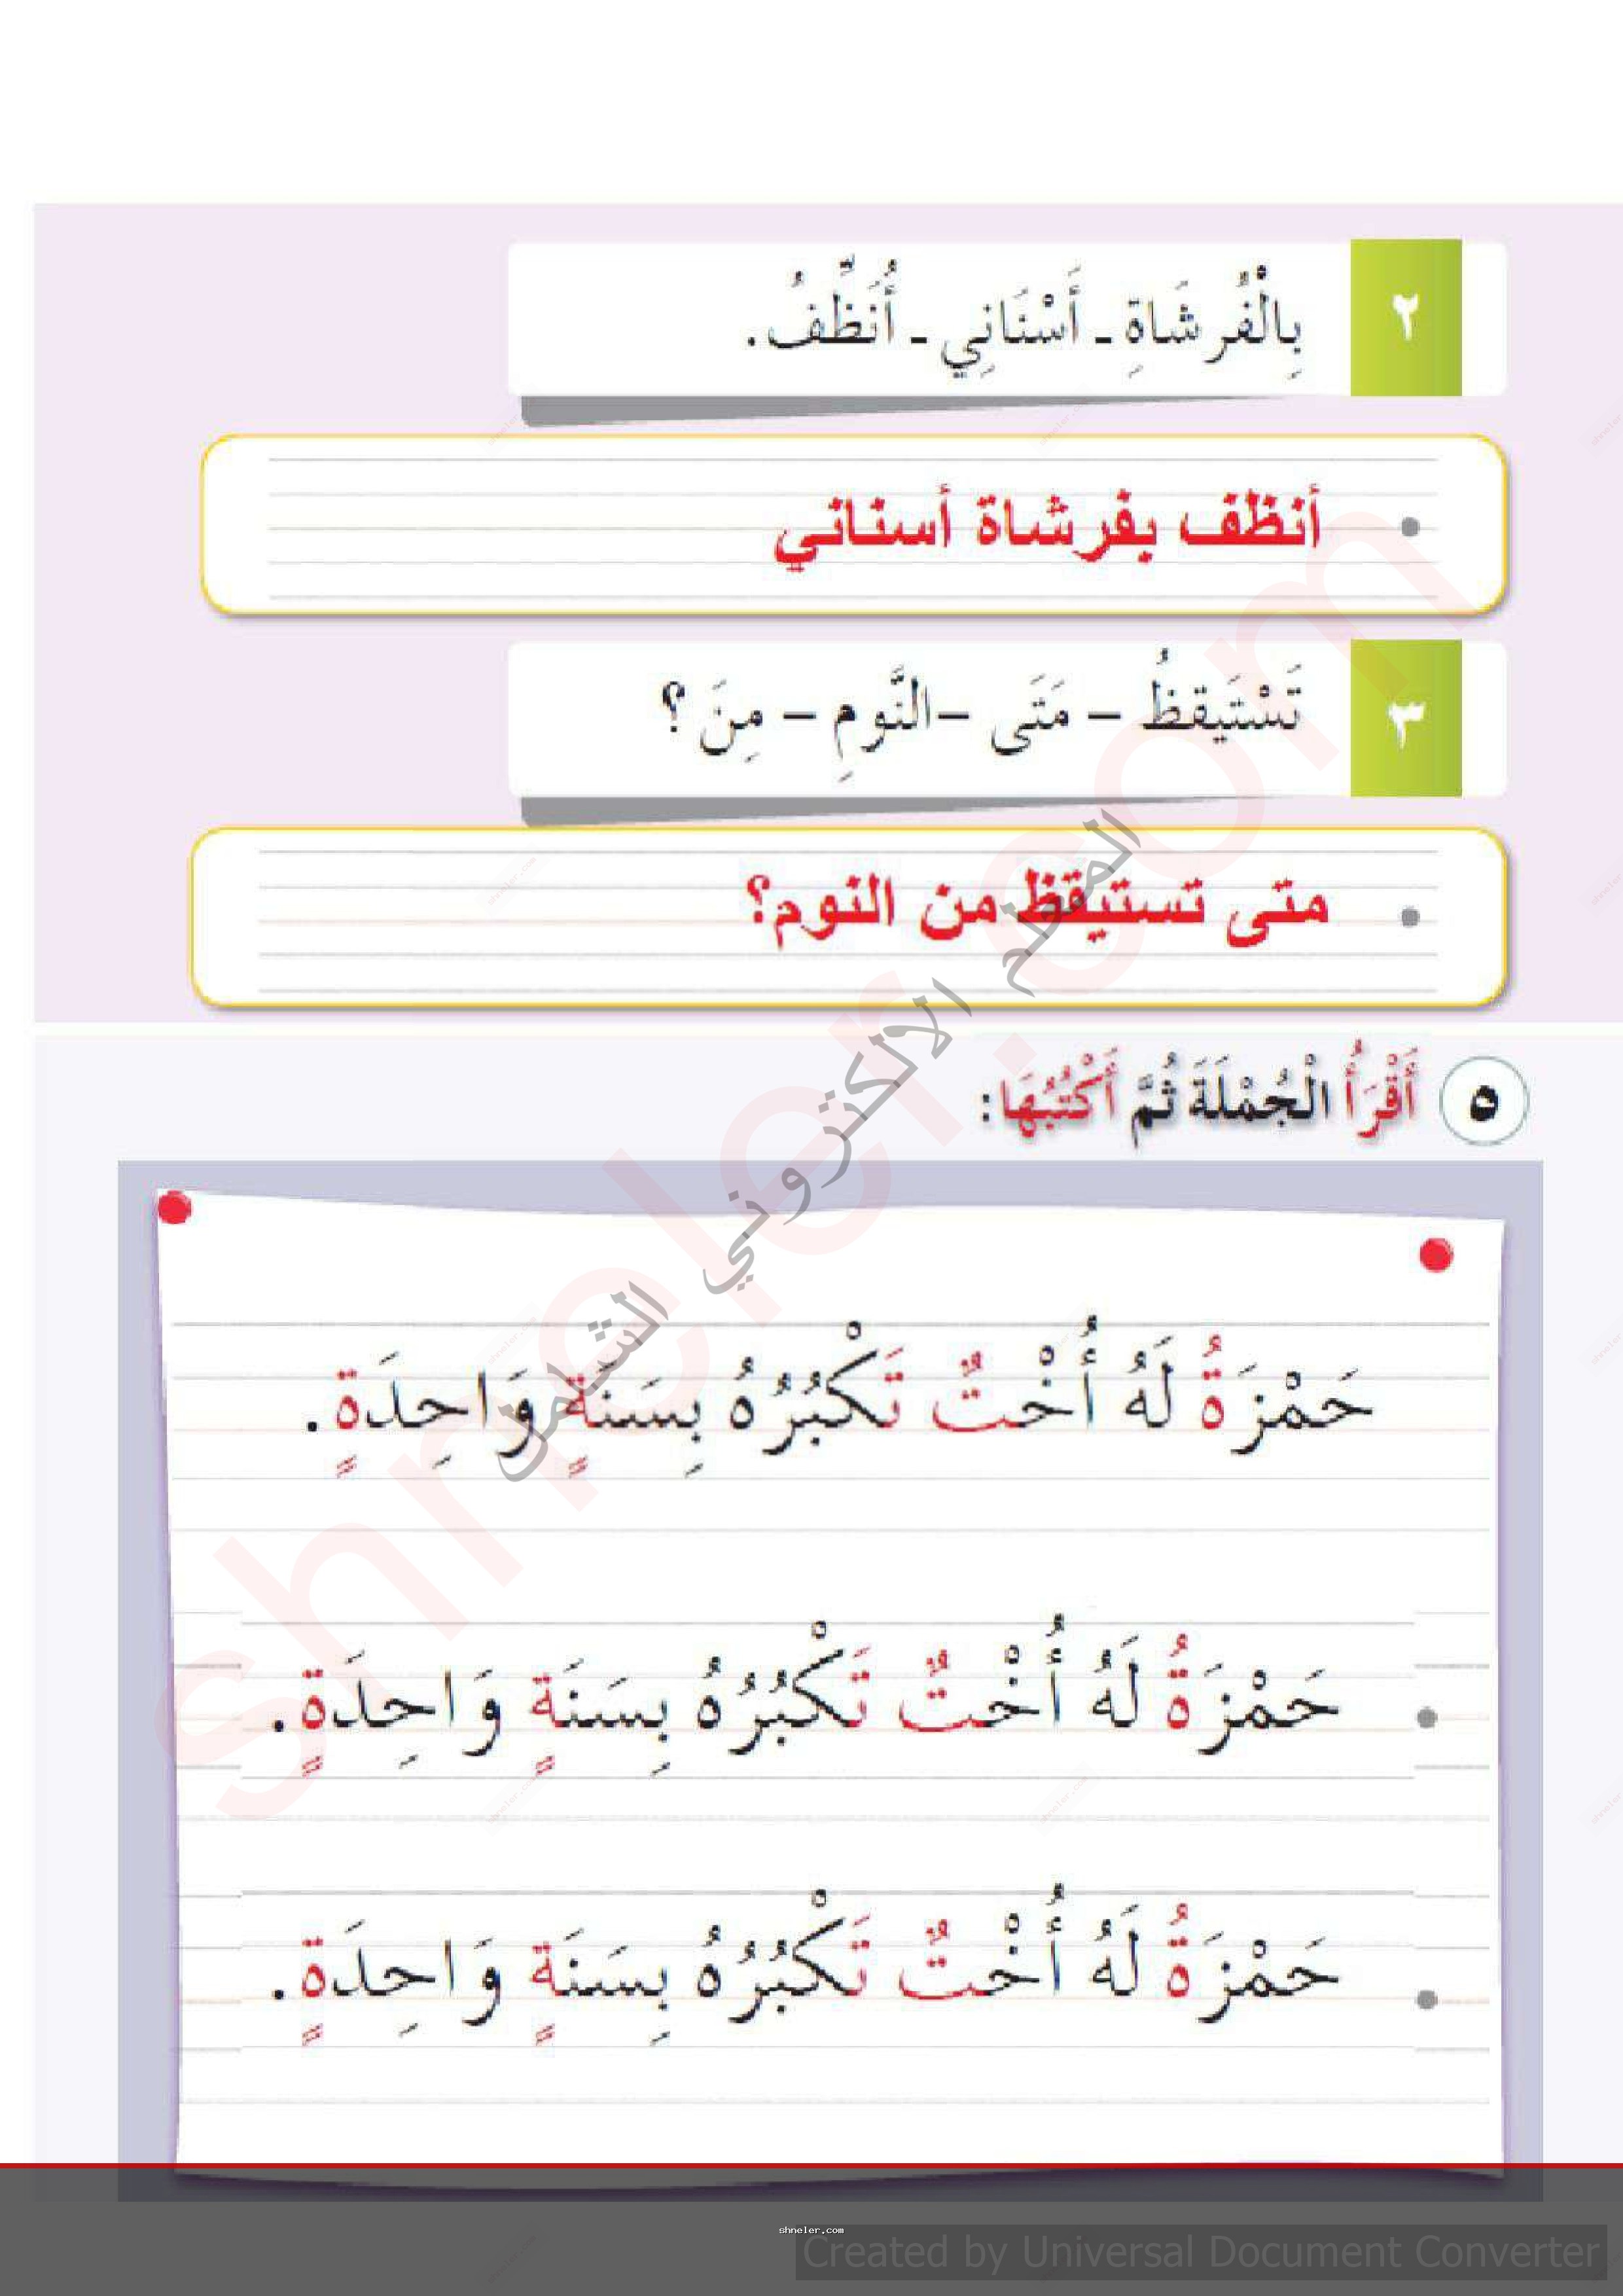 ٢ بِالْفُرشَاةِ ـ أَسْنَانِي ـ أُنَظِّفُ.
• أنظف بفرشاة أسناني
٣ تَسْتَيقظُ – مَتَى –النَّومِ – مِنَ ؟
• متى تستيقظ من النوم؟
٥ أَقْرَأُ الْجُمْلَةَ ثُمَّ أَكْتُبُهَا:
حَمْزَةُ لَهُ أُخْتٌ تَكْبُرُهُ بِسَنَةٍ وَاحِدَةٍ.
• حَمْزَةُ لَهُ أُخْتٌ تَكْبُرُهُ بِسَنَةٍ وَاحِدَةٍ.
• حَمْزَةُ لَهُ أُخْتٌ تَكْبُرُهُ بِسَنَةٍ وَاحِدَةٍ.
shneler.com
المعلم الالكتروني الشامل
shneler.com
Created by Universal Document Converter